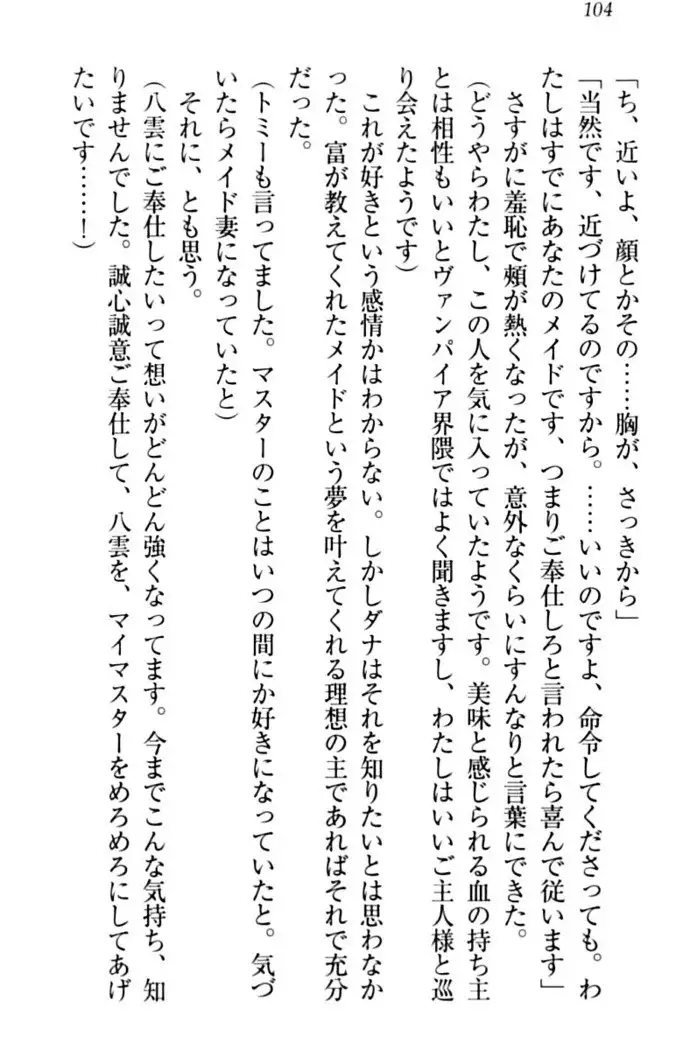 104
「ち、近いよ、顔とかその……胸が、さっきから」
「当然です、近づけてるのですから。……いいのですよ、命令してくださっても。わ
たしはすでにあなたのメイドです、つまりご奉仕しろと言われたら喜んで従います」
　さすがに羞恥で頬が熱くなったが、意外なくらいにすんなりと言葉にできた。
（どうやらわたし、この人を気に入っていたようです。美味と感じられる血の持ち主
とは相性もいいとヴァンパイア界隈ではよく聞きますし、わたしはいいご主人様と巡
り会えたようです）
　これが好きという感情かはわからない。しかしダナはそれを知りたいとは思わなか
った。富が教えてくれたメイドという夢を叶えてくれる理想の主であればそれで充分
だった。
（トミーも言ってました。マスターのことはいつの間にか好きになっていたと。気づ
いたらメイド妻になっていたと）
　それに、とも思う。
（八雲にご奉仕したいって想いがどんどん強くなってます。今までこんな気持ち、知
りませんでした。誠心誠意ご奉仕して、八雲を、マイマスターをめろめろにしてあげ
たいです……！）